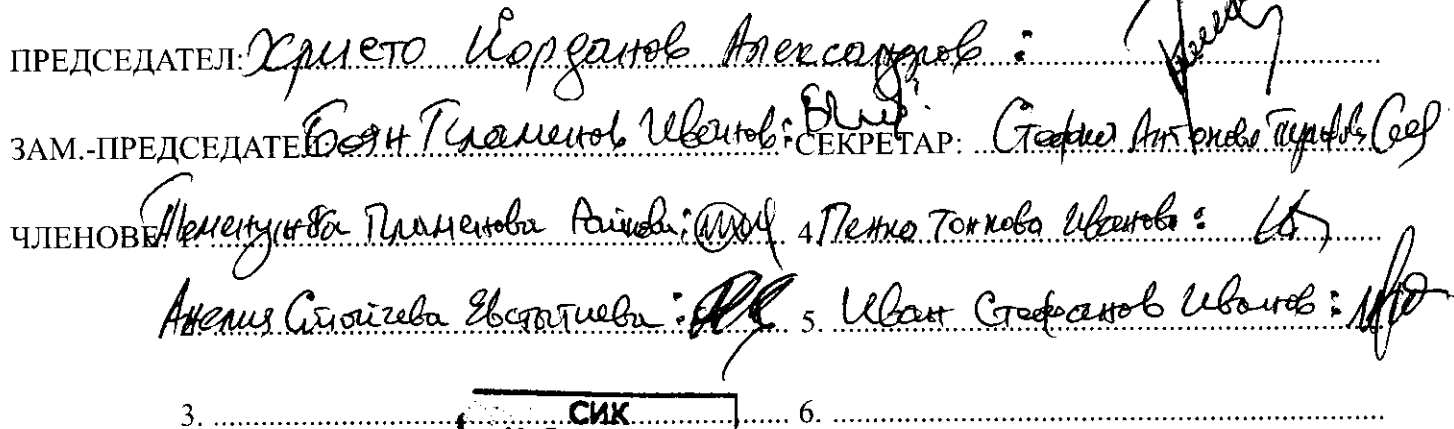 ПРЕДСЕДАТЕЛ: Христо Йорданов Александров :
ЗАМ.-ПРЕДСЕДАТЕЛ Боян Пламенов Иванов : СЕКРЕТАР: Стефка Антонова
ЧЛЕНОВЕ Теменужка Пламенова Райкова : 4 Пенка Тонкова Иванова :
Анелия Стойчева Евстатиева : 5. Иван Стефанов Иванов :
3. СИК 6.